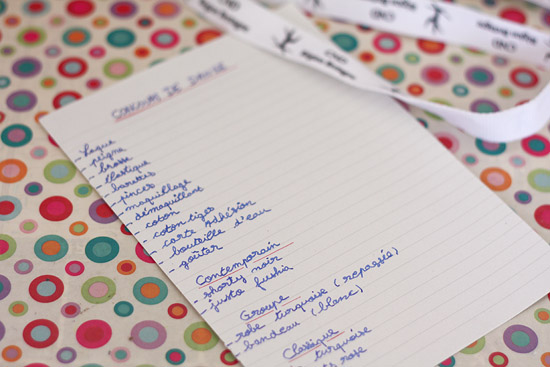 CONCOURS DE DANSE
- laque
- peigne
- brosse
- élastique
- barettes
- pinces
- maquillage
- démaquillant
- coton
- coton tiges
- carte adhésion
- bouteille d'eau
- goûter
Contemporain
- shorty noir
- justo fushia
Groupe
- robe turquoise (repassée)
- bandeau (blanc)
Classique
turquoise
rose
CND
CND